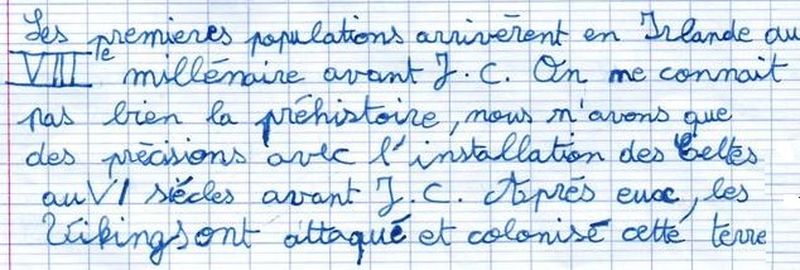 Les premieres populations arrivèrent en Irlande au
VIIIe millénaire avant J.C. On ne connait
pas bien la préhistoire, nous n'avons que
des précisions avec l'installation des Celtes
au VI siécles avant J.C. Après eux, les
Vikings ont attaqué et colonisé cette terre